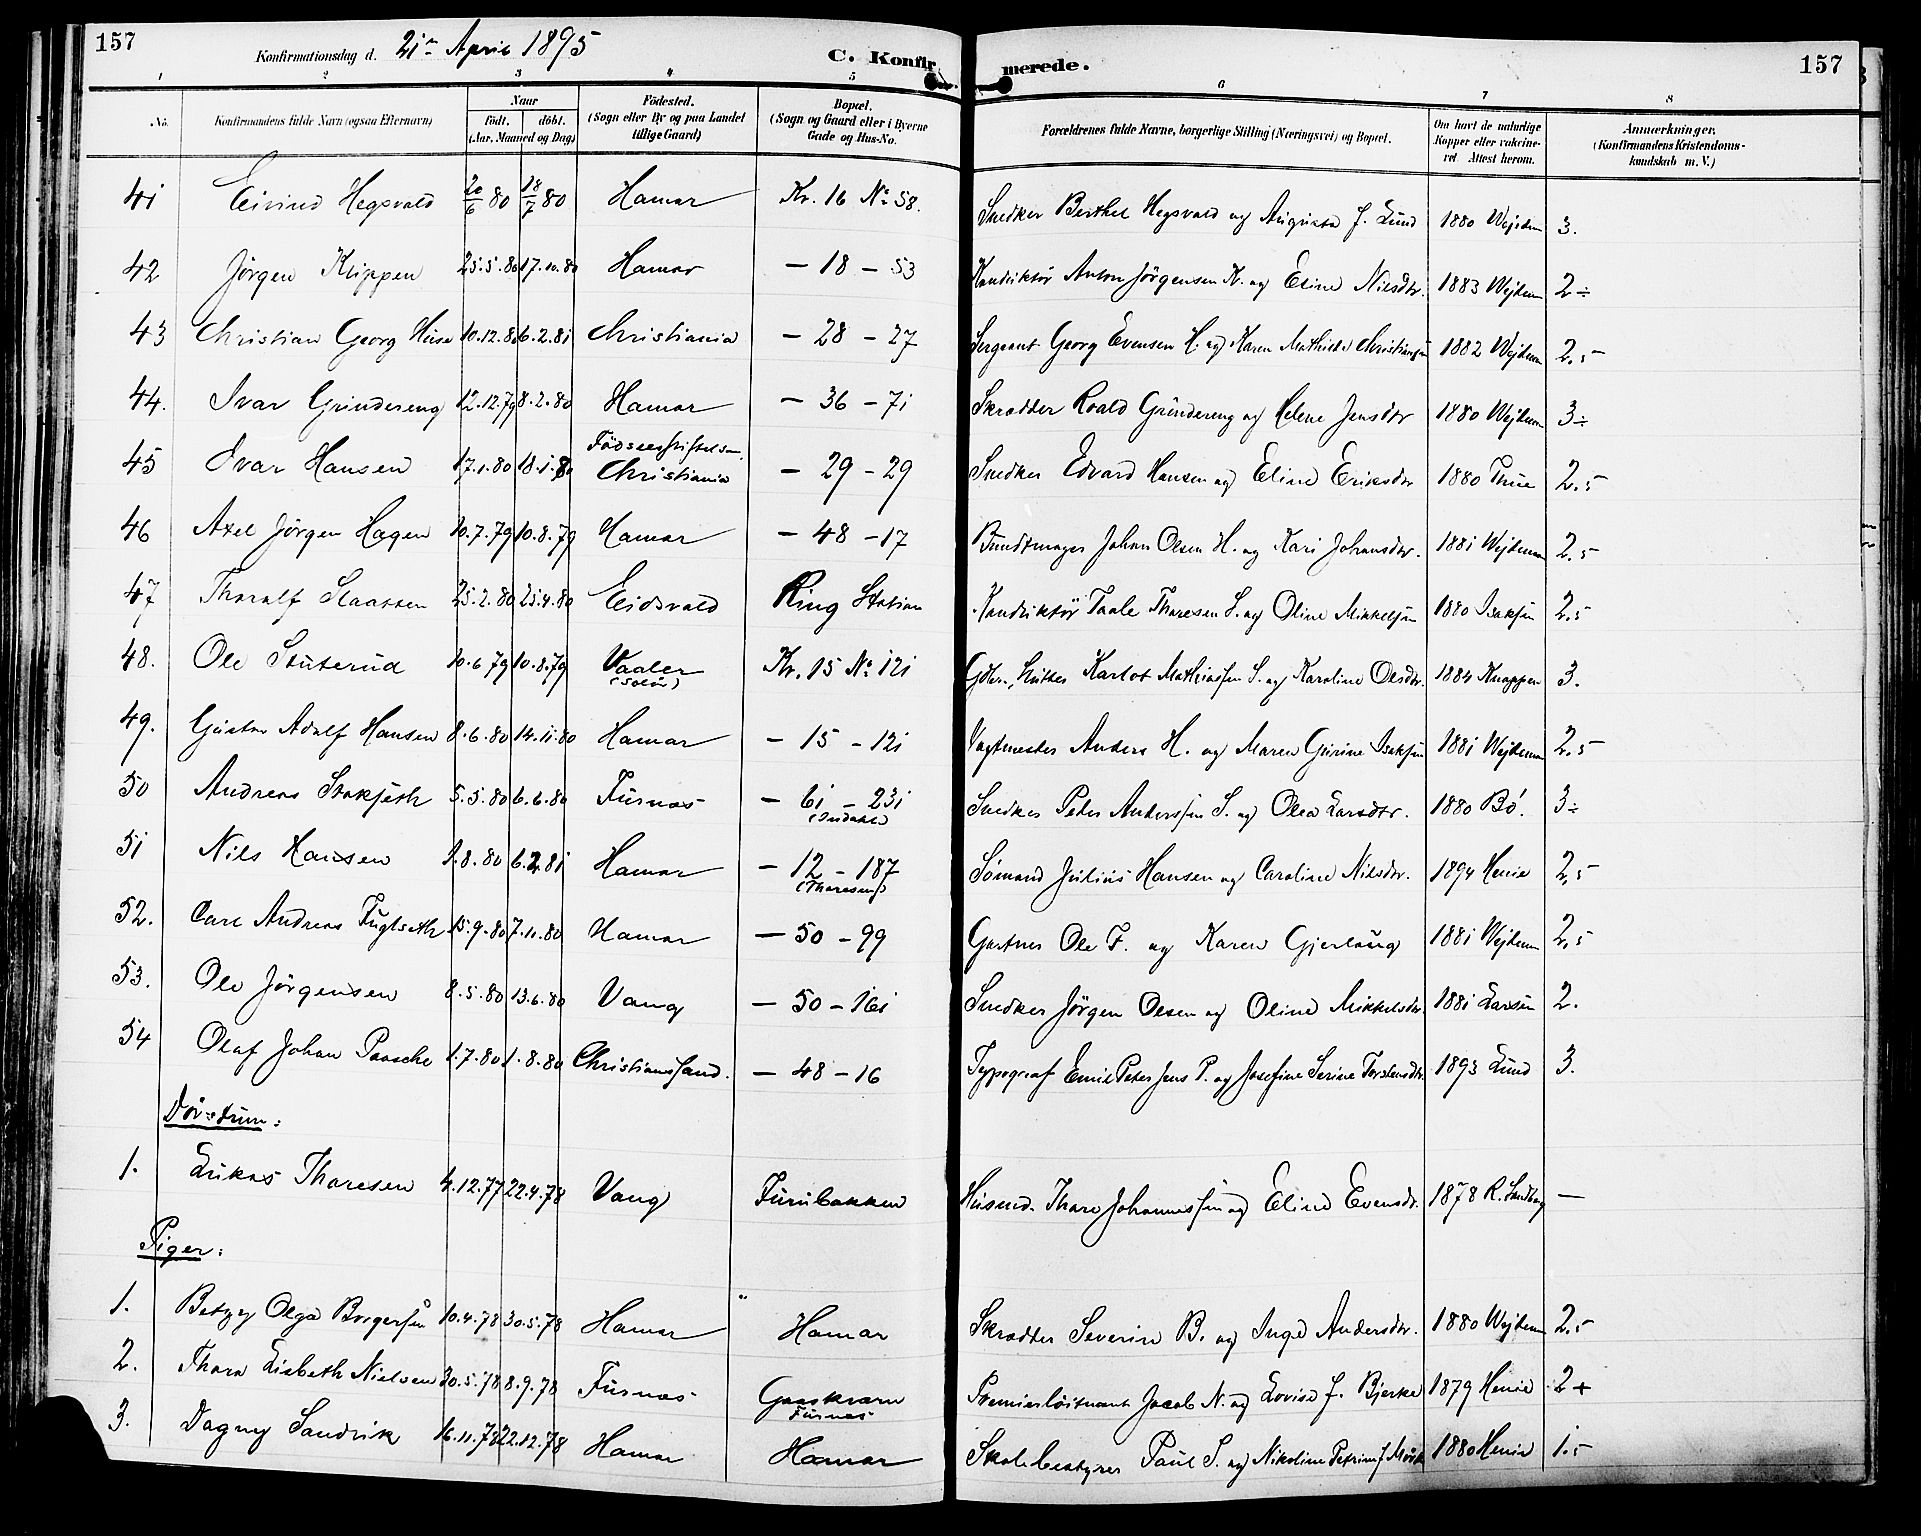 157
Konfirmationsdag d. 21de April 1895 C. Konfirmerede. 157
1 2 3 4 5 6 7 8
No. Konfirmandens fulde Navn (ogsaa Efternavn) Naar født. døbt. (Aar, Maaned og Dag) Födested. (Sogn eller By og paa Landet tillige Gaard) Bopæl. (Sogn og Gaard eller i Byerne Gade og Hus-No. Forældrenes fulde Navne, borgerlige Stilling (Næringsvei) og Bopæl. Om havt de naturlige Kopper eller vakcineret. Attest herom. Anmærkninger. (Konfirmandens Kristendomskundskab m. V.)
41 Eivind Hegsvold 20/6 80 18/7 80 Hamar Kv. 16 No 58. Snedker Berthel Hegsvold og Augusta f. Lund 1880 Wejdem 3.
42 Jörgen Kxippen 25.5.80 17.10.80 Hamar — 18 — 53 Konduktör Anton Jörgensen K. og Eline Nilsdtr. 1883 Wejdem 2÷
43 Christian Georg Huse 10.12.80 6.2.81 Christiania — 28 — 27 Sergeant Georg Evensen H. og Karen Mathilde Christiansen 1882 Wejdem 2,5
44. Ivar Grindereng 12.12.79 8.2.80 Hamar — 36 — 71 Skrædder Roald Grindereng og Helene Jensdtr 1880 Wejdem 3÷
45 Ivar Hansen 17.1.80 18.1.80 Födselsstiftelsen, Christiania — 29 — 29 Snedker Edvard Hansen og Eline Eriksdtr 1880 Thue 2,5
46 Axel Jörgen Hagen 10.7.79 10.8.79 Hamar — 48 — 17 Bundtmager Johan Olsen H. og Kari Johansdtr. 1881 Wejdem 2,5
47 Tharalf Slaatten 25.2.80 25.4.80 Eidsvold Ring Station Konduktör Taale Thoresen S. og Oline Mikkelsen 1880 Isaksen 2,5
48. Ole Stuterud 10.6.79 10.8.79 Vaaler (Solör) Kv. 15 No 121 Karlot Mathiassen S. og Karoline Olsdtr. 1884 Knappen 3.
49. Gustav Adolf Hansen 8.6.80 14.11.80 Hamar — 15 — 121 Vagtmester Anders H. og Maren Gurine Isaksen 1881 Wejdem 2,5
50 Andreas Stokseth 5.5.80 6.6.80 Furnæs — 61 — 231 Snedker Peter Anderssen S. og Olea Larsdtr. 1880 Bö. 3÷
51 Nils Hansen 9.8.80 6.2.81 Hamar — 12 — 187 (Thoreseng) Sömand Julius Hansen og Caroline Nilsdtr. 1894 Henie 2,5
52. Carl Andreas Fuglseth 15.9.80 7.11.80 Hamar — 50 — 99 Gartner Ole F. og Karen Gjerlaug 1881 Wejdem 2,5
53. Ole Jörgensen 8.5.80 13.6.80 Vang — 50 — 161 Snedker Jörgen Olsen og Oline Mikkelsdtr. 1881 Larsen 2.
54 Olaf Johan Paasche 1.7.80 1.8.80 Christianssand. — 48 — 16 Typograf Emil Peter Jens P. og Josefine Serine Torstensdtr. 1893 Lund 3.
Døvstum:
1. Lukas Thoresen 4.12.77 22.4.78 Vang Furubakken Husmd. Thore Johannessen og Eline Evensdtr. 1878 R. Sandberg —
Piger:
1. Betzy Olga Borgersen 10.4.78 30.5.78 Hamar Hamar Skrædder Severin B. og Inge Andersdtr. 1880 Wejdem 2,5
2. Thora Lisbeth Nielsen 30.5.78 8.9.78 Furnæs Gaaskværn Furnæs Premierlöitnant Jacob N. og Lovise f. Bjerke 1879 Henie 2+
3. Dagny Sandvik 16.11.78 22.12.78 Hamar Hamar Skolebestyrer Paul S. og Nikoline Petrine f. Mörk 1880 Henie 1.5